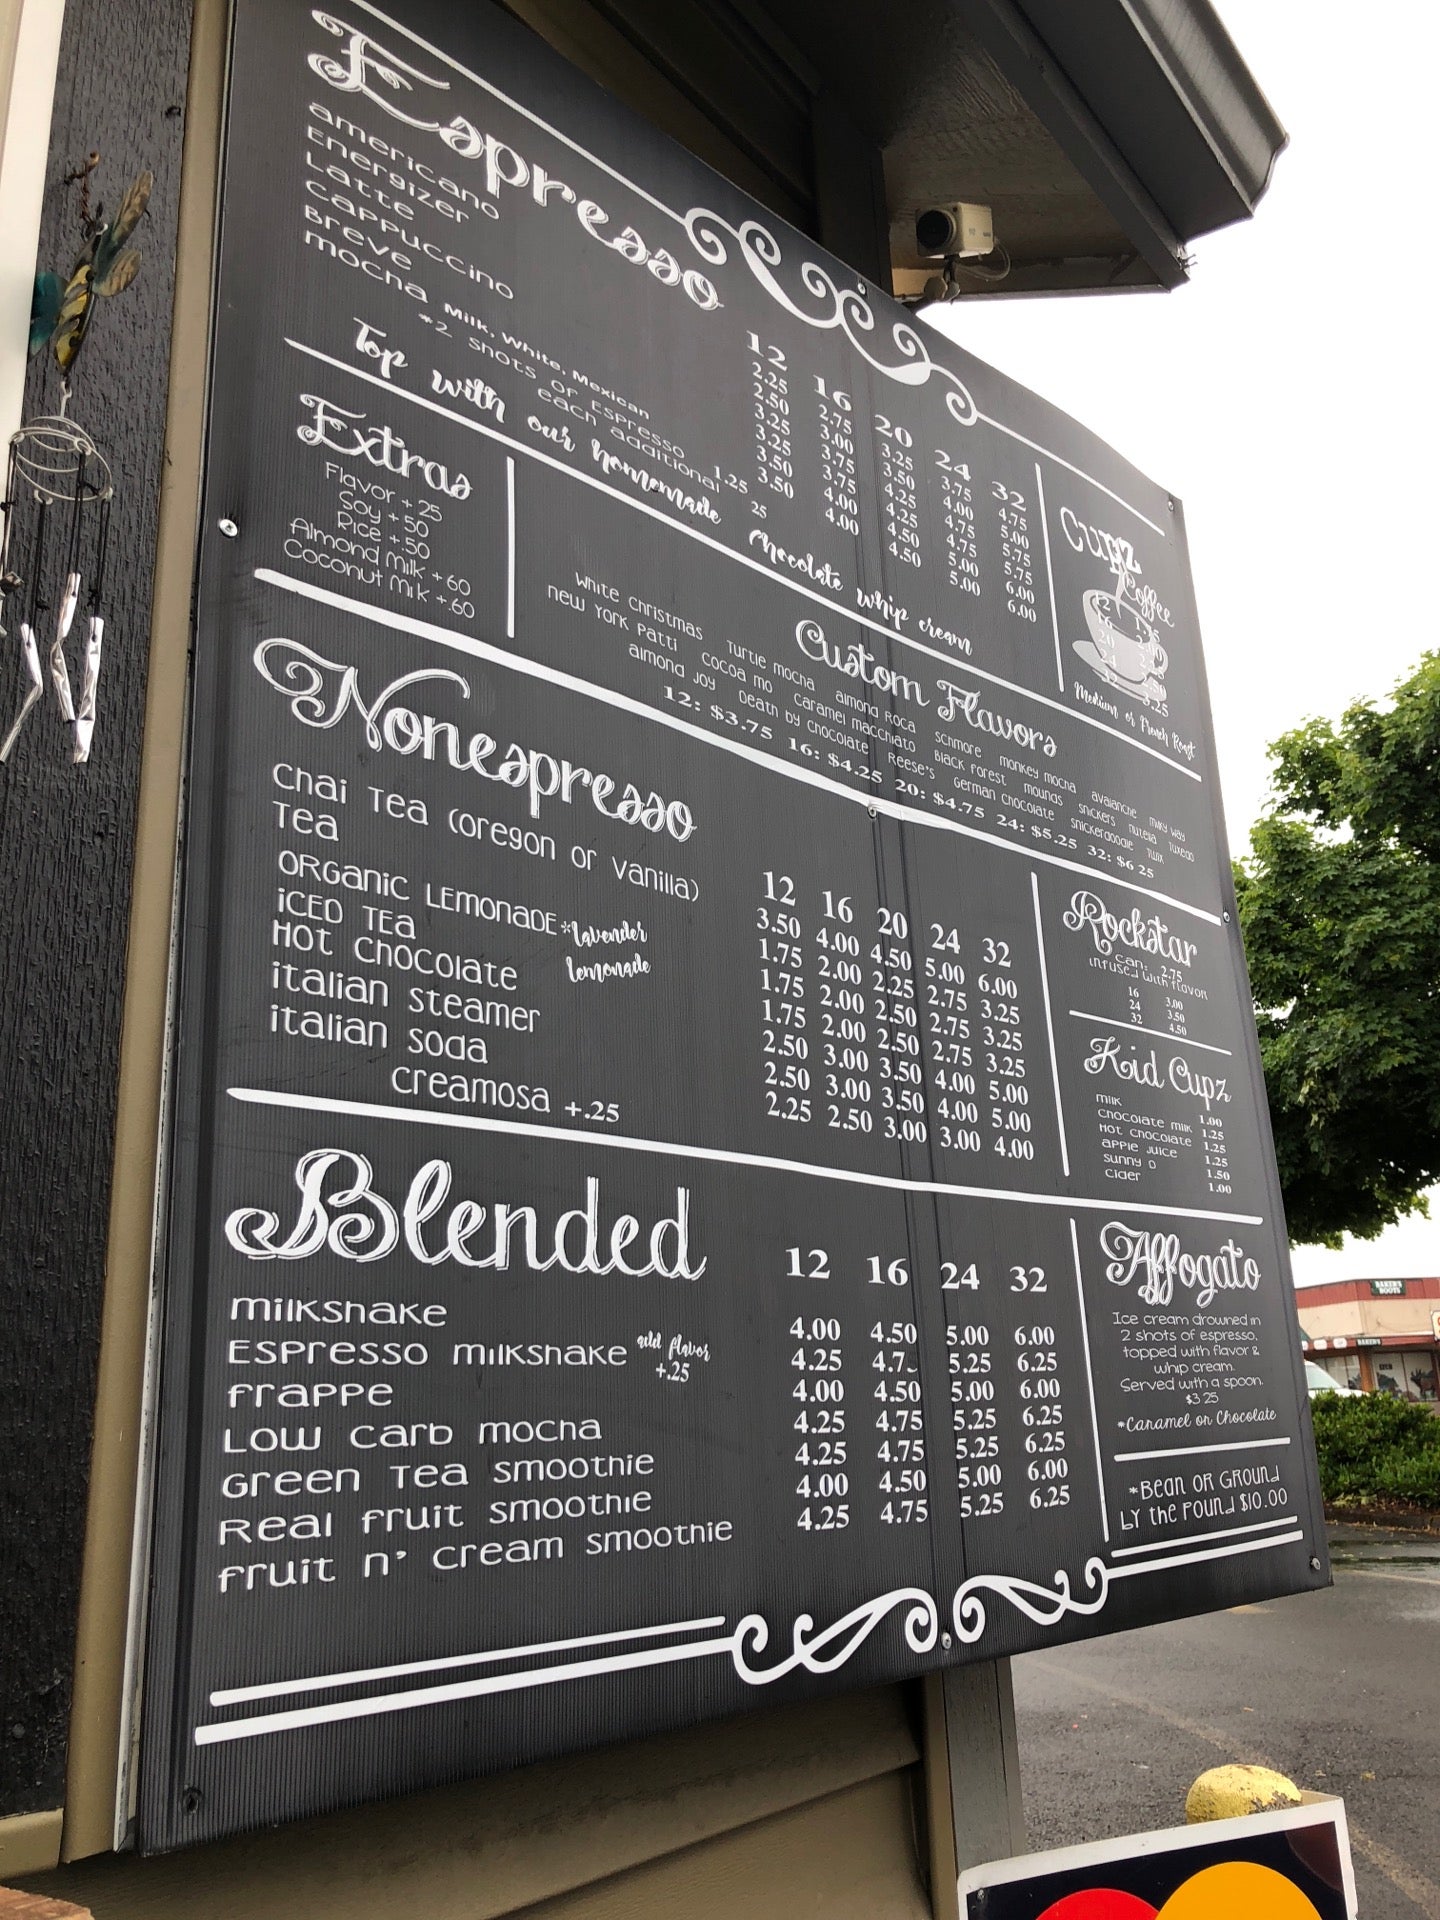 Espresso
12 16 20 24 32
americano 2.25 2.75 3.25 3.75 4.75
Energizer 2.50 3.00 3.50 4.00 5.00
Latte 3.25 3.75 4.25 4.75 5.75
Cappuccino 3.25 3.75 4.25 4.75 5.75
Breve 3.50 4.00 4.50 5.00 6.00
mocha Milk, White, Mexican 3.50 4.00 4.50 5.00 6.00
*2 shots of Espresso 1.25
each additional 25
Top with our homemade chocolate whip cream
Cupz
Coffee
12
16
20
24
32 3.25
Medium or French Roast
Extras
Flavor + 25
Soy + 50
Rice +.50
Almond Milk + 60
Coconut Milk +.60
Custom Flavors
White Christmas Turtle mocha almond Roca schmore monkey mocha avalanche milky way
New York Patti cocoa mo Caramel macchiato Black Forest mounds snickers nutella Tuxedo
almond Joy Death by chocolate Reese's German chocolate snickerdoodle Twix
12: $3.75 16: $4.25 20: $4.75 24: $5.25 32: $6 25
Nonespresso
12 16 20 24 32
Chai Tea (oregon or vanilla) 3.50 4.00 4.50 5.00 6.00
Tea 1.75 2.00 2.25 2.75 3.25
ORGANIC LEMONADE *lavender lemonade 1.75 2.00 2.50 2.75 3.25
iCED TEA 1.75 2.00 2.50 2.75 3.25
HOT CHOCOLATE 2.50 3.00 3.50 4.00 5.00
italian steamer 2.50 3.00 3.50 4.00 5.00
italian soda 2.25 2.50 3.00 3.00 4.00
creamosa +.25
Rockstar
can: 2.75
infused with flavor
16 3.00
24 3.50
32 4.50
Kid Cupz
milk 1.00
chocolate milk 1.25
Hot chocolate 1.25
apple juice 1.25
sunny D 1.50
cider 1.00
Blended
12 16 24 32
milkshake 4.00 4.50 5.00 6.00
Espresso milkshake add flavor +.25 4.25 4.7 5.25 6.25
frappe 4.00 4.50 5.00 6.00
Low carb mocha 4.25 4.75 5.25 6.25
Green Tea smoothie 4.25 4.75 5.25 6.25
Real fruit smoothie 4.00 4.50 5.00 6.00
fruit n' cream smoothie 4.25 4.75 5.25 6.25
Affogato
Ice cream drowned in
2 shots of espresso,
topped with flavor &
whip cream.
Served with a spoon.
$3 25
*Caramel or Chocolate
*BEAN OR GROUND
BY THE POUND $10.00
BAKER'S
BOOTS